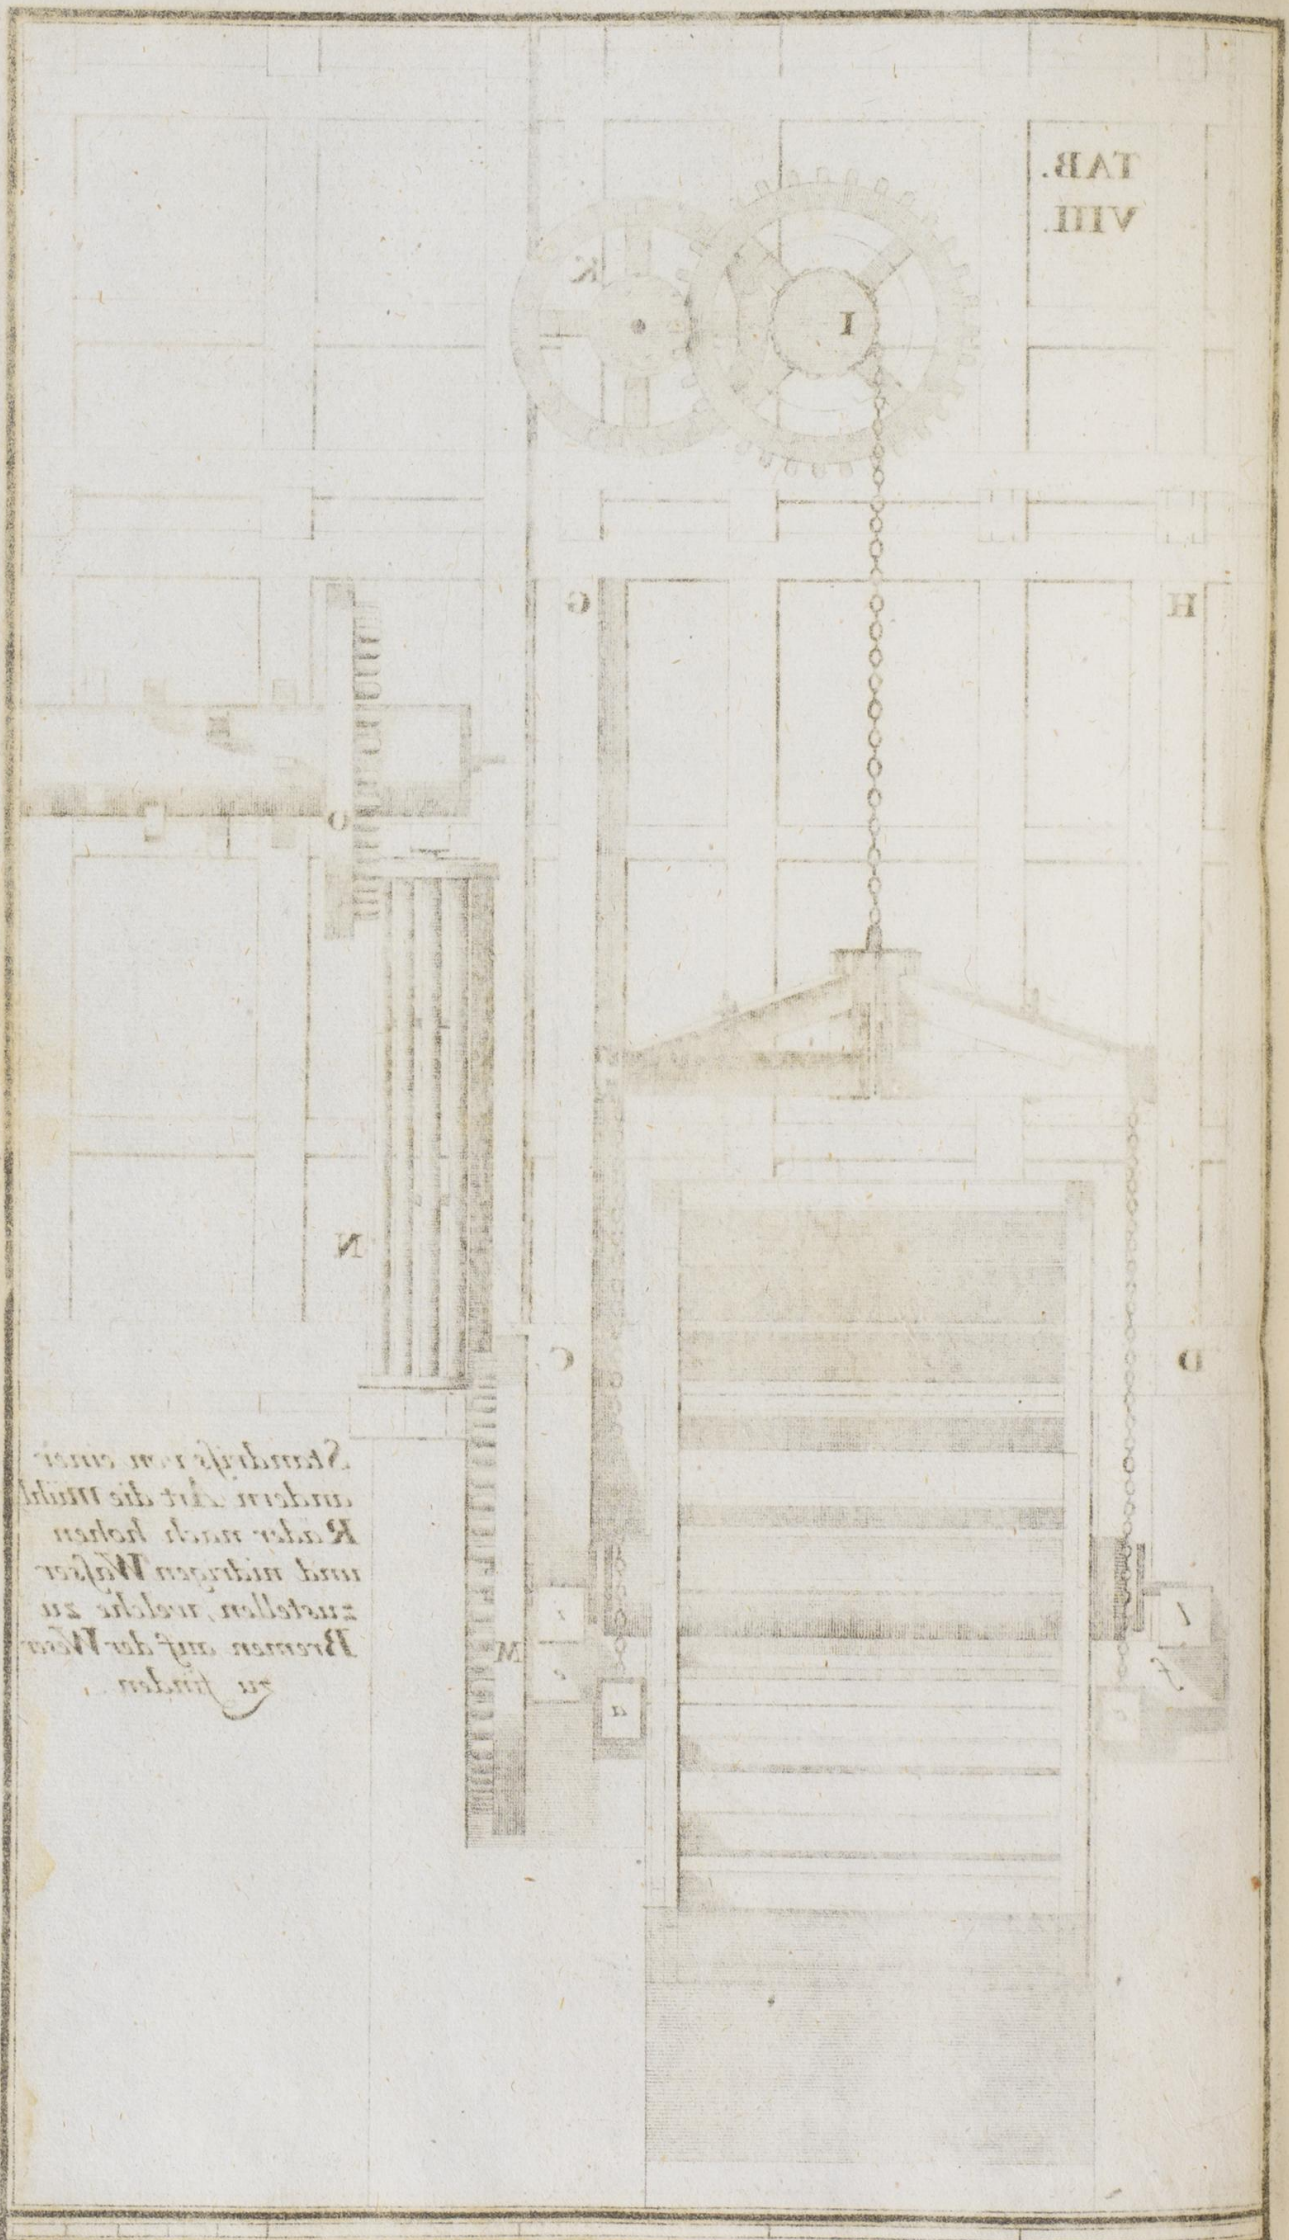 TAB.
VIII.
K
I
G
H
O
N
C
D
Standriſs von einer
andern Art die Mühl
Räder nach hohen
und nidrigen Waſser
zustellen, welche zu
Bremen auf der Weser
zu finden
M
i
e
a
l
f
c